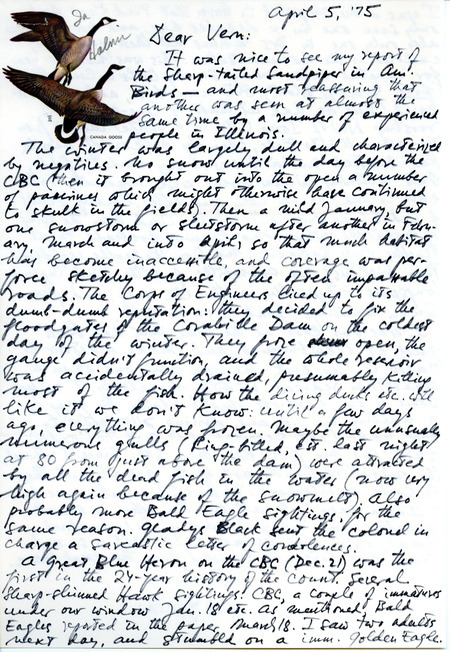 April 5, '75
Ia
Halmi
Dear Vern:
It was nice to see my report of
the Sharp-tailed Sandpiper in Am.
Birds — and most reassuring that
another was seen at almost the
same time by a number of experienced
people in Illinois.
CANADA GOOSE
The winter was largely dull and characterized
by negatives. No snow until the day before the
CBC (then it brought out into the open a number
of passerines which might otherwise have continued
to skulk in the fields). Then a mild January, but
one snowstorm or sleetstorm after another in Febru-
ary, March and into April, so that much habitat
has become inaccessible, and coverage was per-
force sketchy because of the often impassable
roads. The Corps of Engineers lived up to its
dumb-dumb reputation: they decided to fix the
floodgates of the Coralville Dam on the coldest
day of the winter. They froze open, the
gauge didn't function, and the whole reservoir
was accidentally drained, presumably killing
most of the fish. How the diving ducks etc. will
like it we don't know: until a few days
ago, everything was frozen. Maybe the unusually
numerous gulls (Ring-billed, est. last night
at 80 from just above the dam) were attracted
by all the dead fish in the water (now very
high again because of the snowmelt). Also
probably more Bald Eagle sightings for the
same reason. Gladys Black sent the colonel in
charge a sarcastic letter of condolences.
A Great Blue Heron on the CBC (Dec. 21) was the
first in the 24-year history of the count. Several
Sharp-shinned Hawk sightings: CBC, a couple of immatures
under our window Jan. 18 etc. As mentioned, Bald
Eagles reported in the paper March 18. I saw two adults
next day, and stumbled on a imm. Golden Eagle.